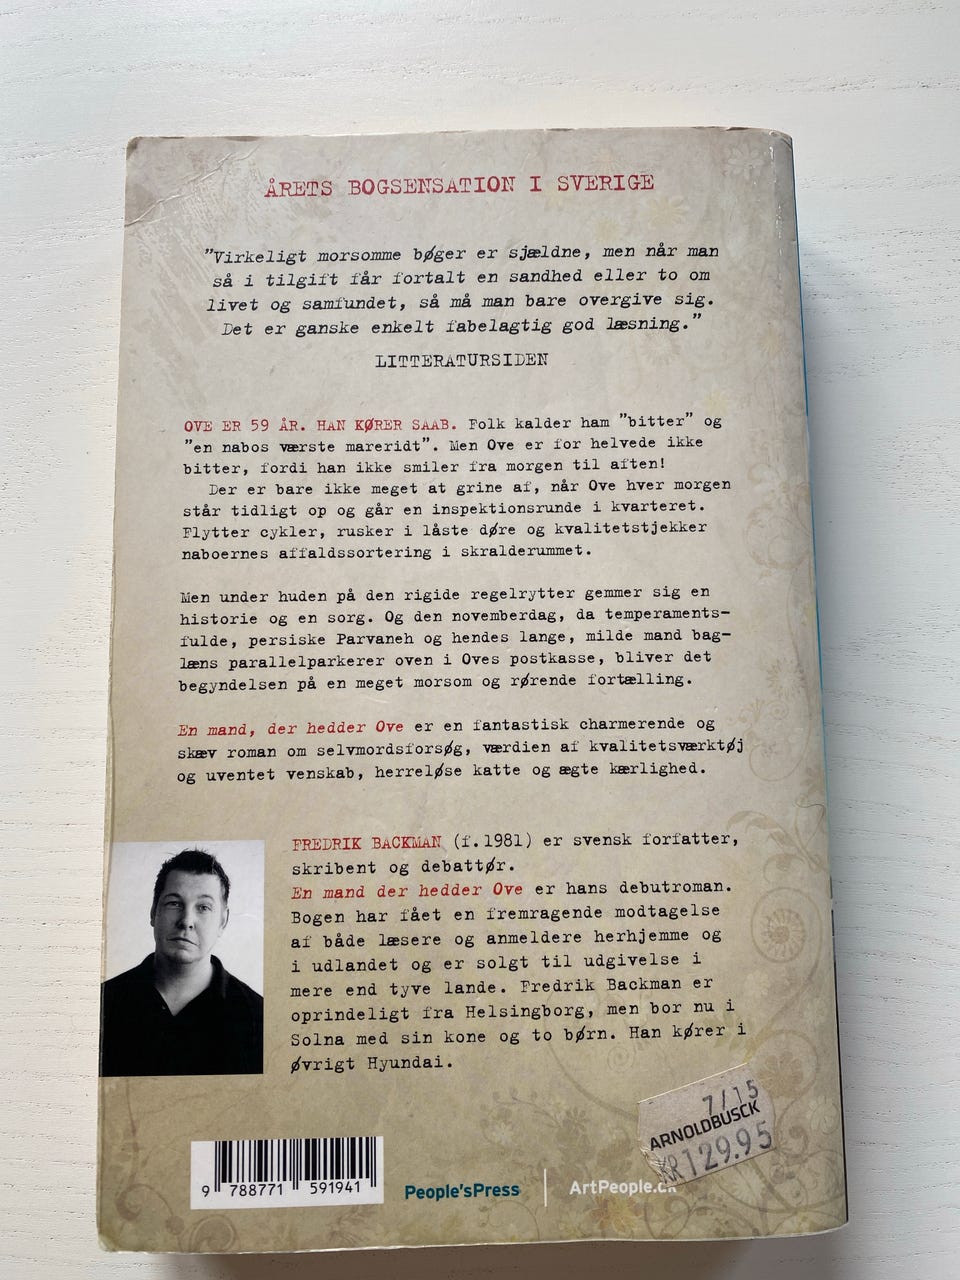 ÅRETS BOGSENSATION I SVERIGE
"Virkeligt morsomme bøger er sjældne, men når man
så i tilgift får fortalt en sandhed eller to om
livet og samfundet, så må man bare overgive sig.
Det er ganske enkelt fabelagtig god læsning."
LITTERATURSIDEN
OVE ER 59 ÅR. HAN KØRER SAAB. Folk kalder ham "bitter" og
"en nabos værste mareridt". Men Ove er for helvede ikke
bitter, fordi han ikke smiler fra morgen til aften!
Der er bare ikke meget at grine af, når Ove hver morgen
står tidligt op og går en inspektionsrunde i kvarteret.
Flytter cykler, rusker i låste døre og kvalitetstjekker
naboernes affaldssortering i skralderummet.
Men under huden på den rigide regelrytter gemmer sig en
historie og en sorg. Og den novemberdag, da temperaments-
fulde, persiske Parvaneh og hendes lange, milde mand bag-
læns parallelparkerer oven i Oves postkasse, bliver det
begyndelsen på en meget morsom og rørende fortælling.
En mand, der hedder Ove er en fantastisk charmerende og
skæv roman om selvmordsforsøg, værdien af kvalitetsværktøj
og uventet venskab, herreløse katte og ægte kærlighed.
FREDRIK BACKMAN (f.1981) er svensk forfatter,
skribent og debattør.
En mand der hedder Ove er hans debutroman.
Bogen har fået en fremragende modtagelse
af både læsere og anmeldere herhjemme og
i udlandet og er solgt til udgivelse i
mere end tyve lande. Fredrik Backman er
oprindeligt fra Helsingborg, men bor nu i
Solna med sin kone og to børn. Han kører i
øvrigt Hyundai.
7/15
ARNOLDBUSCK
KR129.95
9 788771 591941
People'sPress | ArtPeople.dk